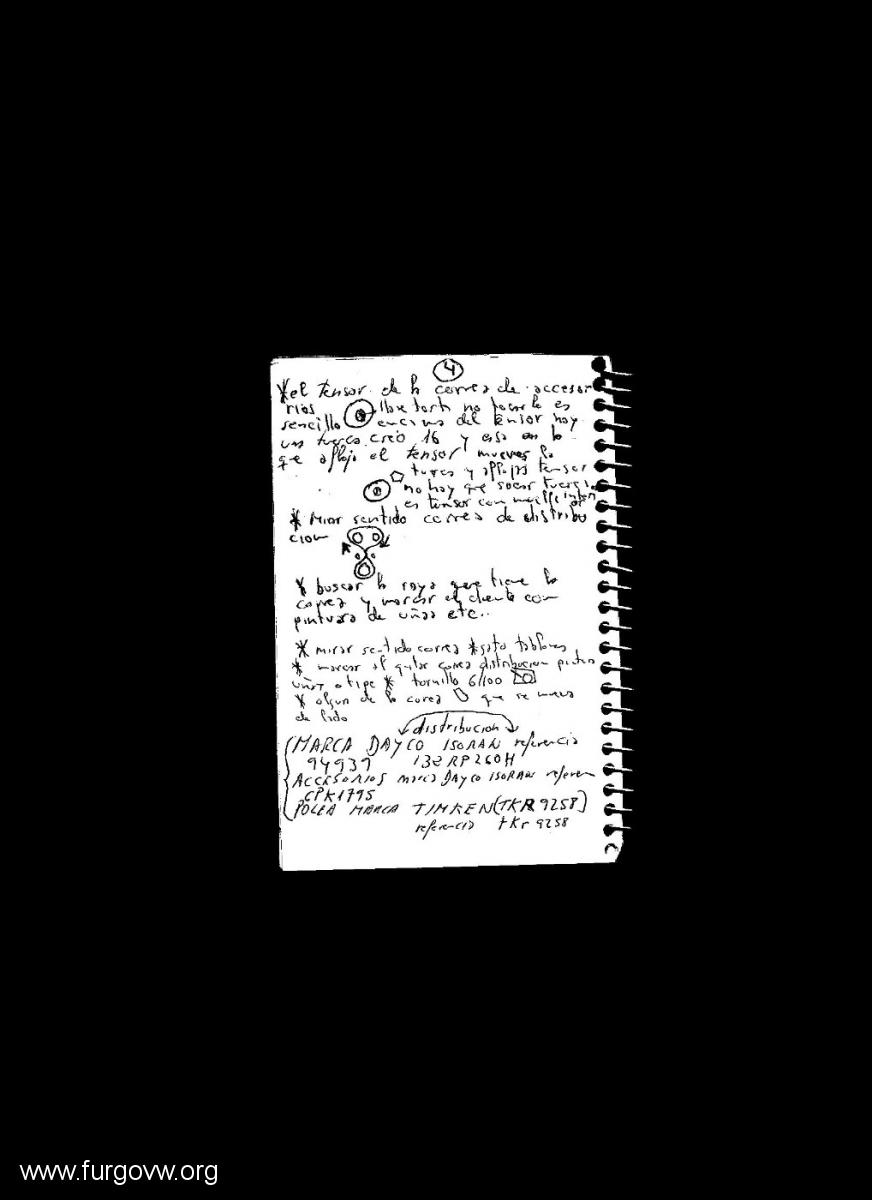 4
*el tensor de la correa de accesor
rios
sencillo encima del tensor hay
una tuerca creo 16 y esa en la
que afloja el tensor mueves la
tuerca y aflojas tensor
no hay que sacar tuerca
es tensor con
* Mirar sentido correa de distribu
cion
* buscar la raya que tiene la
correa y marcar el diente con
pintura de uñas etc..
* mirar sentido correa *gato tablones
* marcar al quitar correa distribucion pintar
uñas o tipe * tornillo 6/100
* algun de la correa que se mueva
de lado
distribucion
MARCA DAYCO ISORAN referencia
94937 132RP260H
ACCESORIOS marca DAYCO ISORAN referen
CPK1795
POLEA MARCA TIMKEN (TKR 9258)
referencia tKr 9258
www.furgovw.org